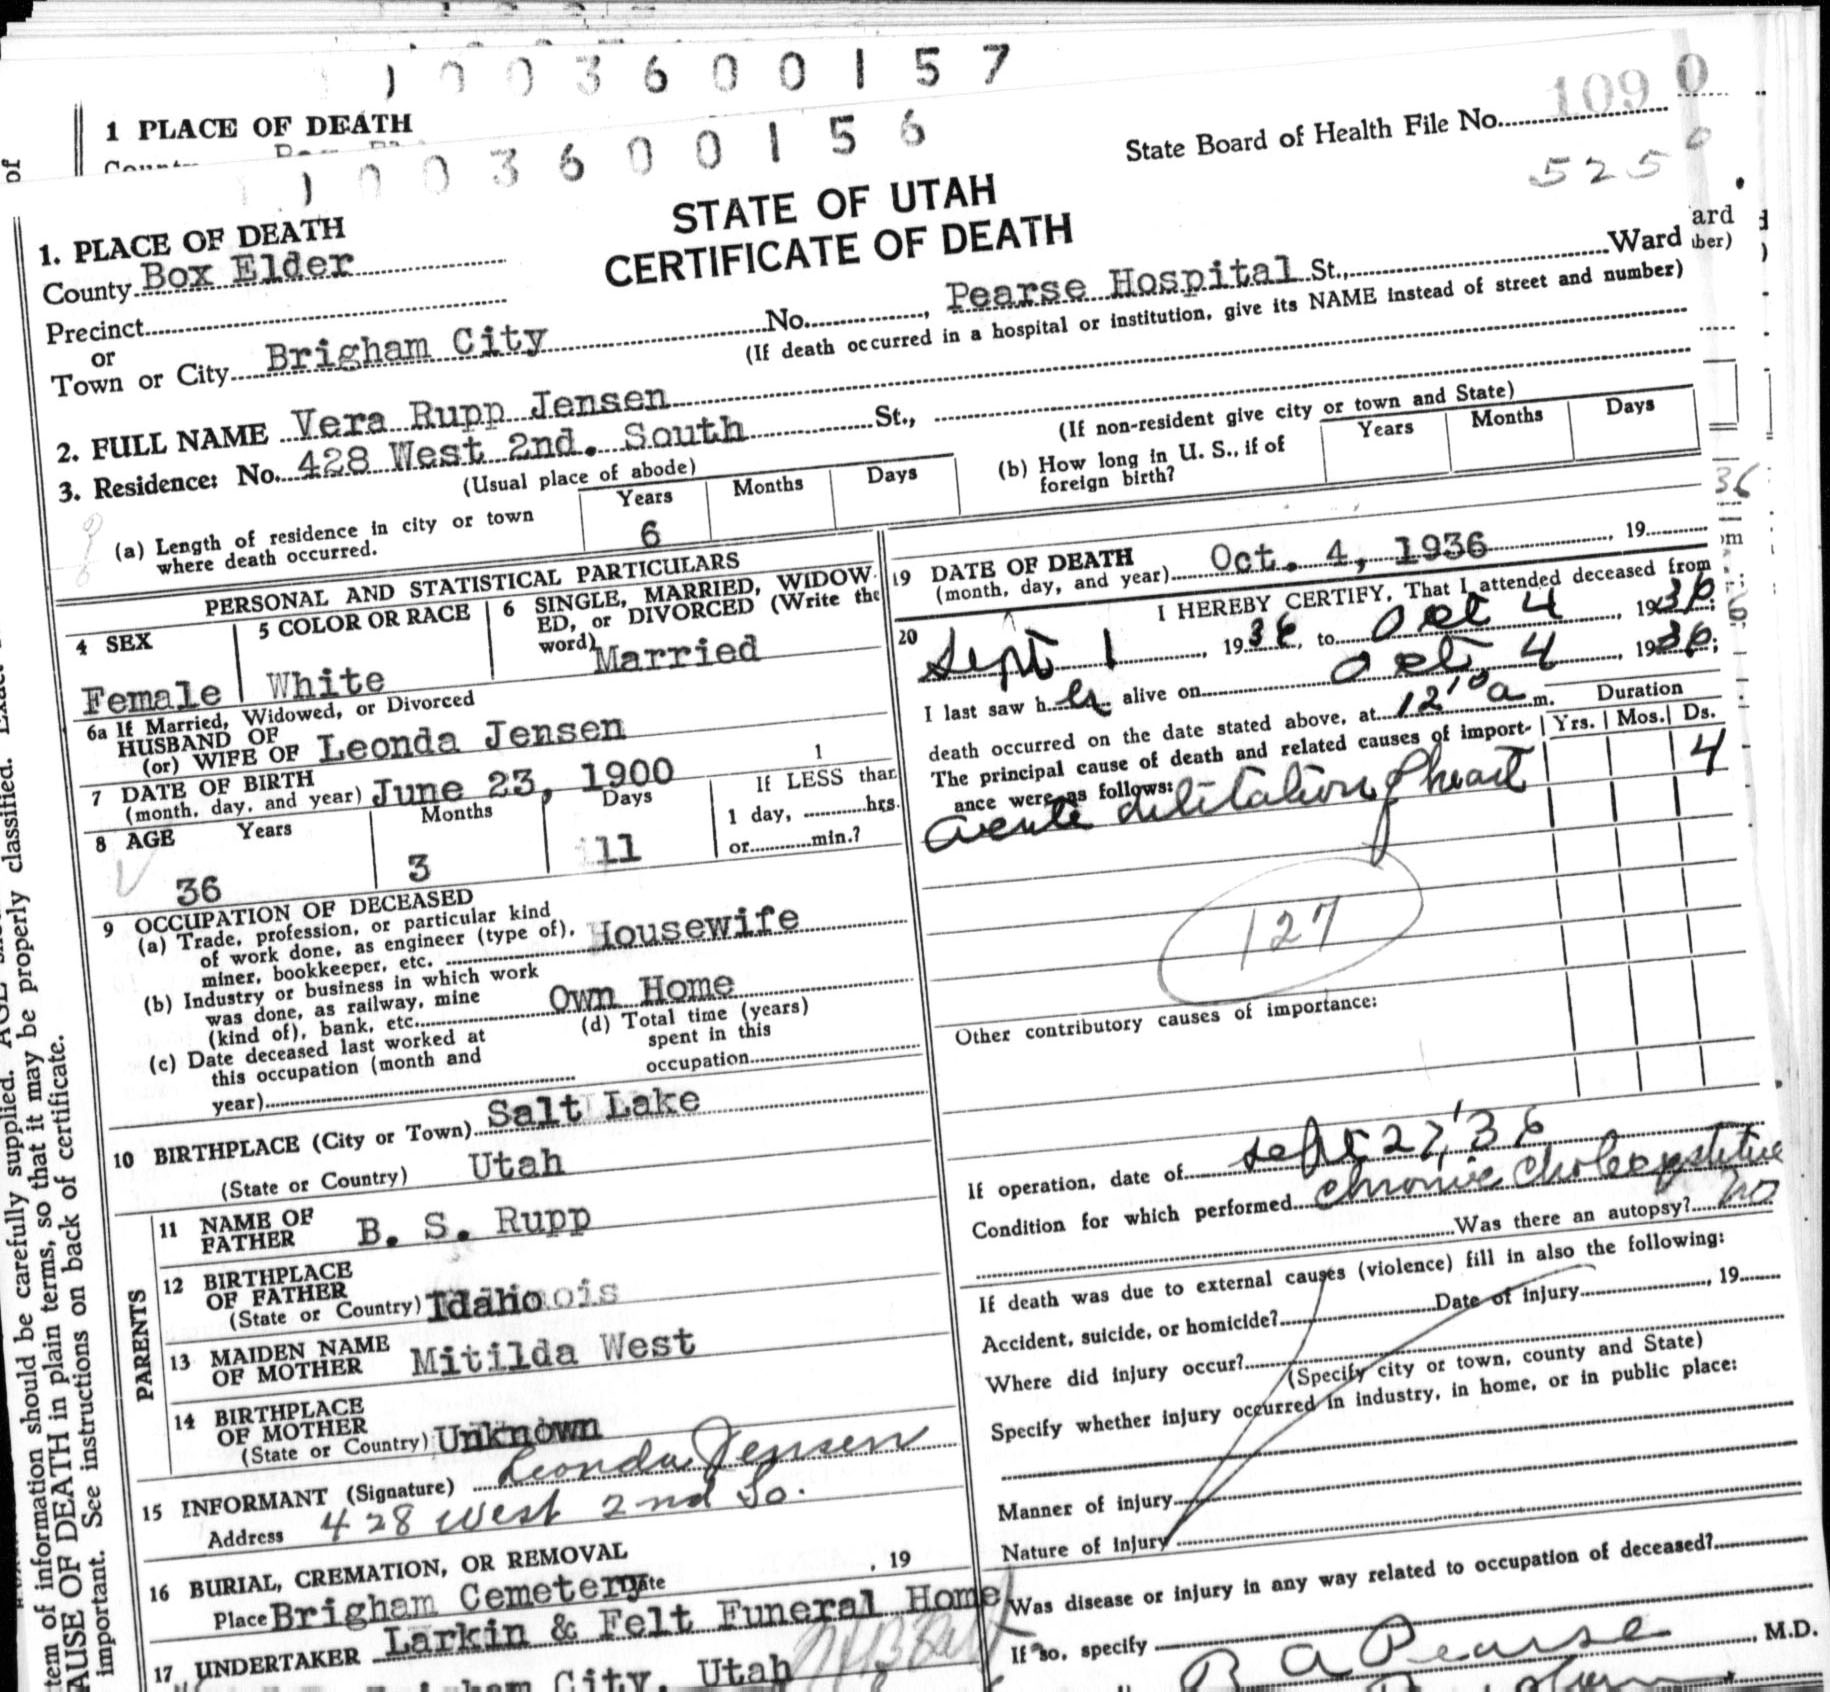 1003600157
1 PLACE OF DEATH
1003600156
State Board of Health File No. 109 0
525 0
STATE OF UTAH
CERTIFICATE OF DEATH
1. PLACE OF DEATH
County Box Elder
Precinct
or
Town or City Brigham City No. , Pearse Hospital St., Ward
(If death occurred in a hospital or institution, give its NAME instead of street and number)
2. FULL NAME Vera Rupp Jensen
3. Residence: No. 428 West 2nd. South St.,
(Usual place of abode) (If non-resident give city or town and State)
(a) Length of residence in city or town where death occurred. Years 6 Months Days
(b) How long in U. S., if of foreign birth? Years Months Days
PERSONAL AND STATISTICAL PARTICULARS
4 SEX Female
5 COLOR OR RACE White
6 SINGLE, MARRIED, WIDOWED, or DIVORCED (Write the word) Married
6a If Married, Widowed, or Divorced
HUSBAND OF
(or) WIFE OF Leonda Jensen
7 DATE OF BIRTH
(month, day, and year) June 23, 1900
8 AGE Years 36 Months 3 Days 11
If LESS than 1 day, hrs.
or min.?
9 OCCUPATION OF DECEASED
(a) Trade, profession, or particular kind
of work done, as engineer (type of),
miner, bookkeeper, etc. Housewife
(b) Industry or business in which work
was done, as railway, mine
(kind of), bank, etc. Own Home
(c) Date deceased last worked at
this occupation (month and
year)
(d) Total time (years)
spent in this
occupation
10 BIRTHPLACE (City or Town) Salt Lake
(State or Country) Utah
PARENTS
11 NAME OF FATHER B. S. Rupp
12 BIRTHPLACE OF FATHER
(State or Country) Idaho
13 MAIDEN NAME OF MOTHER Mitilda West
14 BIRTHPLACE OF MOTHER
(State or Country) Unknown
15 INFORMANT (Signature) Leonda Jensen
Address 428 West 2nd So.
16 BURIAL, CREMATION, OR REMOVAL
Place Brigham Cemetery Date , 19
17 UNDERTAKER Larkin & Felt Funeral Home
City, Utah
19 DATE OF DEATH
(month, day, and year) Oct. 4, 1936 , 19
20 I HEREBY CERTIFY, That I attended deceased from
Sept 1 , 1936, to Oct 4 , 1936;
I last saw her alive on Oct. 4 , 1936;
death occurred on the date stated above, at 12 10 a m.
The principal cause of death and related causes of importance were as follows:
Duration
Yrs. Mos. Ds.
acute dilitation of heart 4
127
Other contributory causes of importance:
If operation, date of Sept 27, '36
Condition for which performed chronic
Was there an autopsy? no
If death was due to external causes (violence) fill in also the following:
Accident, suicide, or homicide? Date of injury , 19
Where did injury occur?
(Specify city or town, county and State)
Specify whether injury occurred in industry, in home, or in public place:
Manner of injury
Nature of injury
Was disease or injury in any way related to occupation of deceased?
If so, specify
R A Pearse , M.D.
tem of information should be carefully supplied.
AUSE OF DEATH in plain terms, so that it may be properly classified.
important. See instructions on back of certificate.